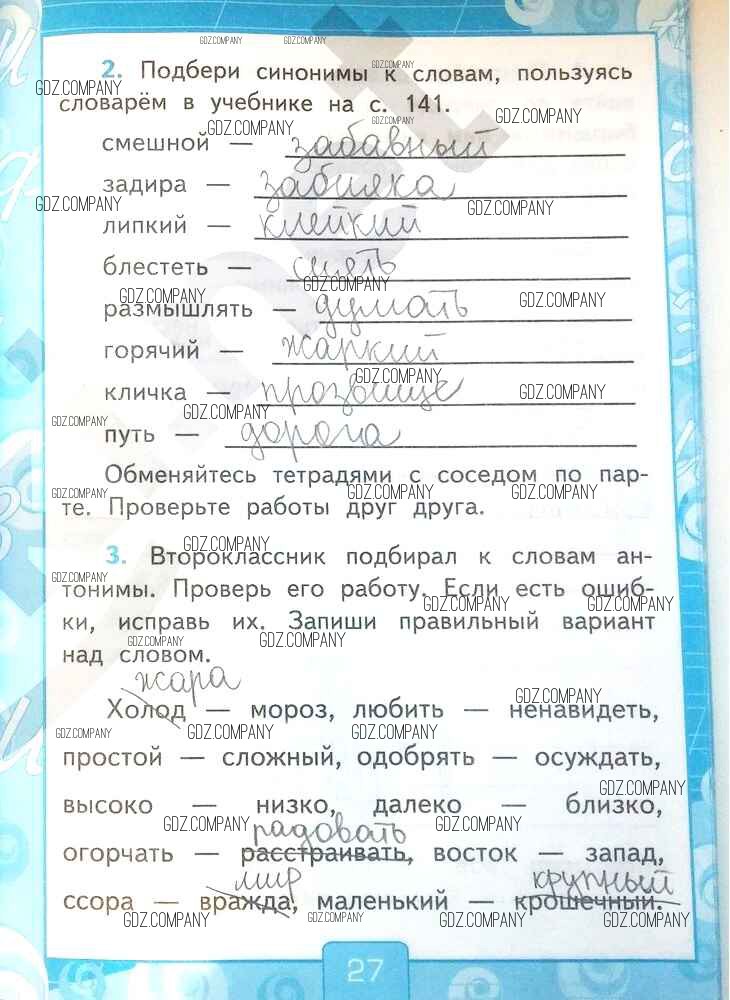 2. Подбери синонимы к словам, пользуясь
словарём в учебнике на с. 141.
смешной — забавный
задира — забияка
липкий — клейкий
блестеть — сиять
размышлять — думать
горячий — жаркий
кличка — прозвище
путь — дорога
Обменяйтесь тетрадями с соседом по пар-
те. Проверьте работы друг друга.
3. Второклассник подбирал к словам ан-
тонимы. Проверь его работу. Если есть ошиб-
ки, исправь их. Запиши правильный вариант
над словом.
жара
Холод — мороз, любить — ненавидеть,
простой — сложный, одобрять — осуждать,
высоко — низко, далеко — близко,
радовать
огорчать — расстраивать, восток — запад,
мир крупный
ссора — вражда, маленький — крошечный.
27
GDZ.COMPANY